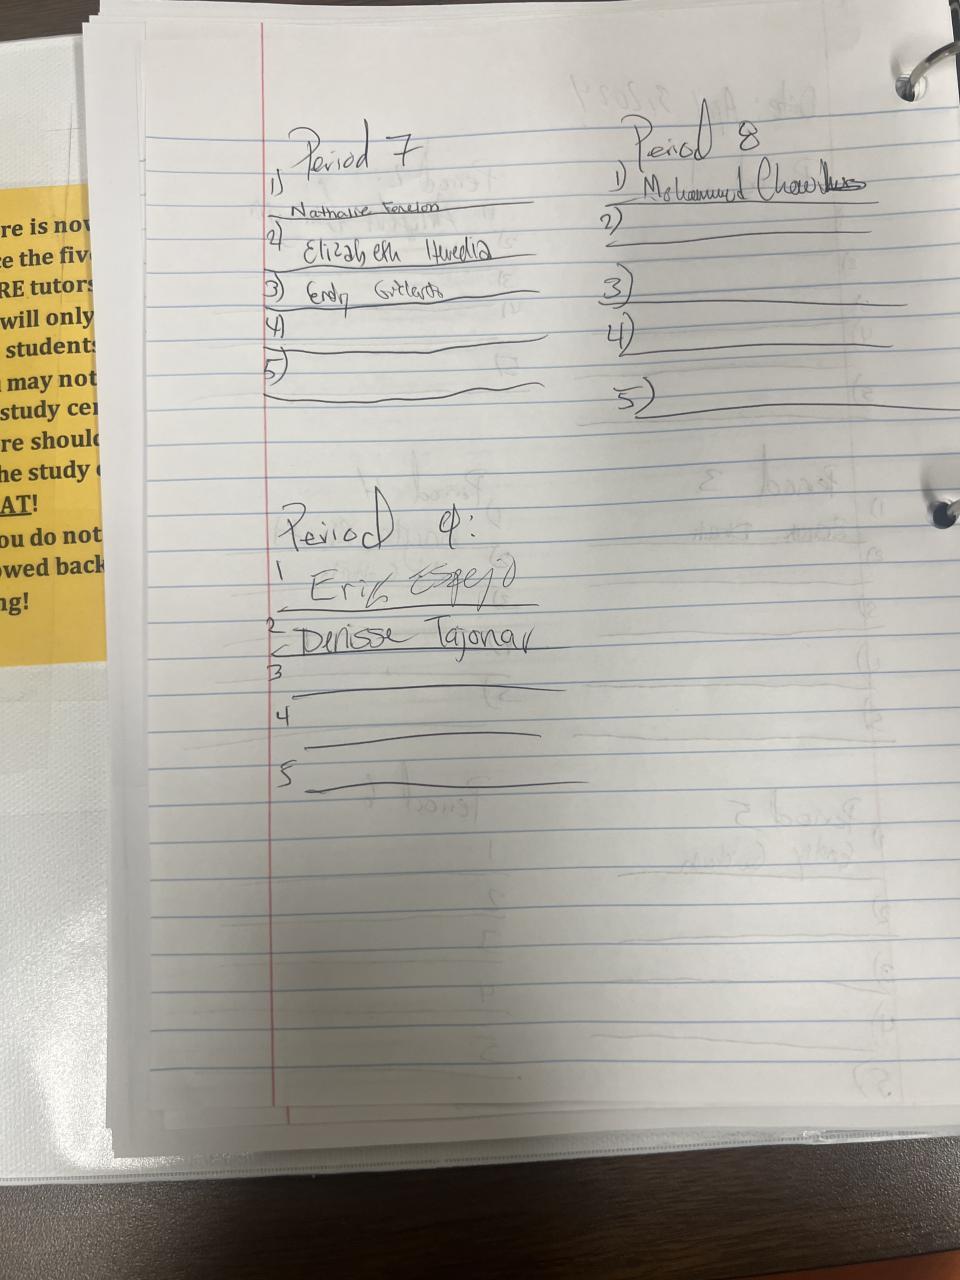 re is nov
e the five
RE tutors
will only
students
may not
study cer
re should
he study
AT!
ou do not
owed back
ng!
Period 7
1) Nathalie
2) Elizabeth Heredia
3)
4)
5)
Period 8
1) Mohammed Chowdhury
2)
3)
4)
5)
Period 9:
1 Erik Espejo
2 Denisse Tajonar
3
4
5